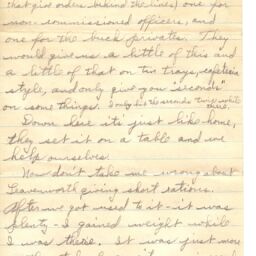 that give orders behind the lines) one for
non-commissioned officers, and
one for the buck privates. They
would give us a little of this and
a little of that on tin trays, cafeteria
style, and only give you "seconds"
on some things. I only had seconds twice while there.
Down here it's just like home,
they set it on a table and we
help ourselves.
Now don't take me wrong about
Leavenworth giving short rations.
After we got used to it - it was
plenty - I gained weight while
I was there. It was just more